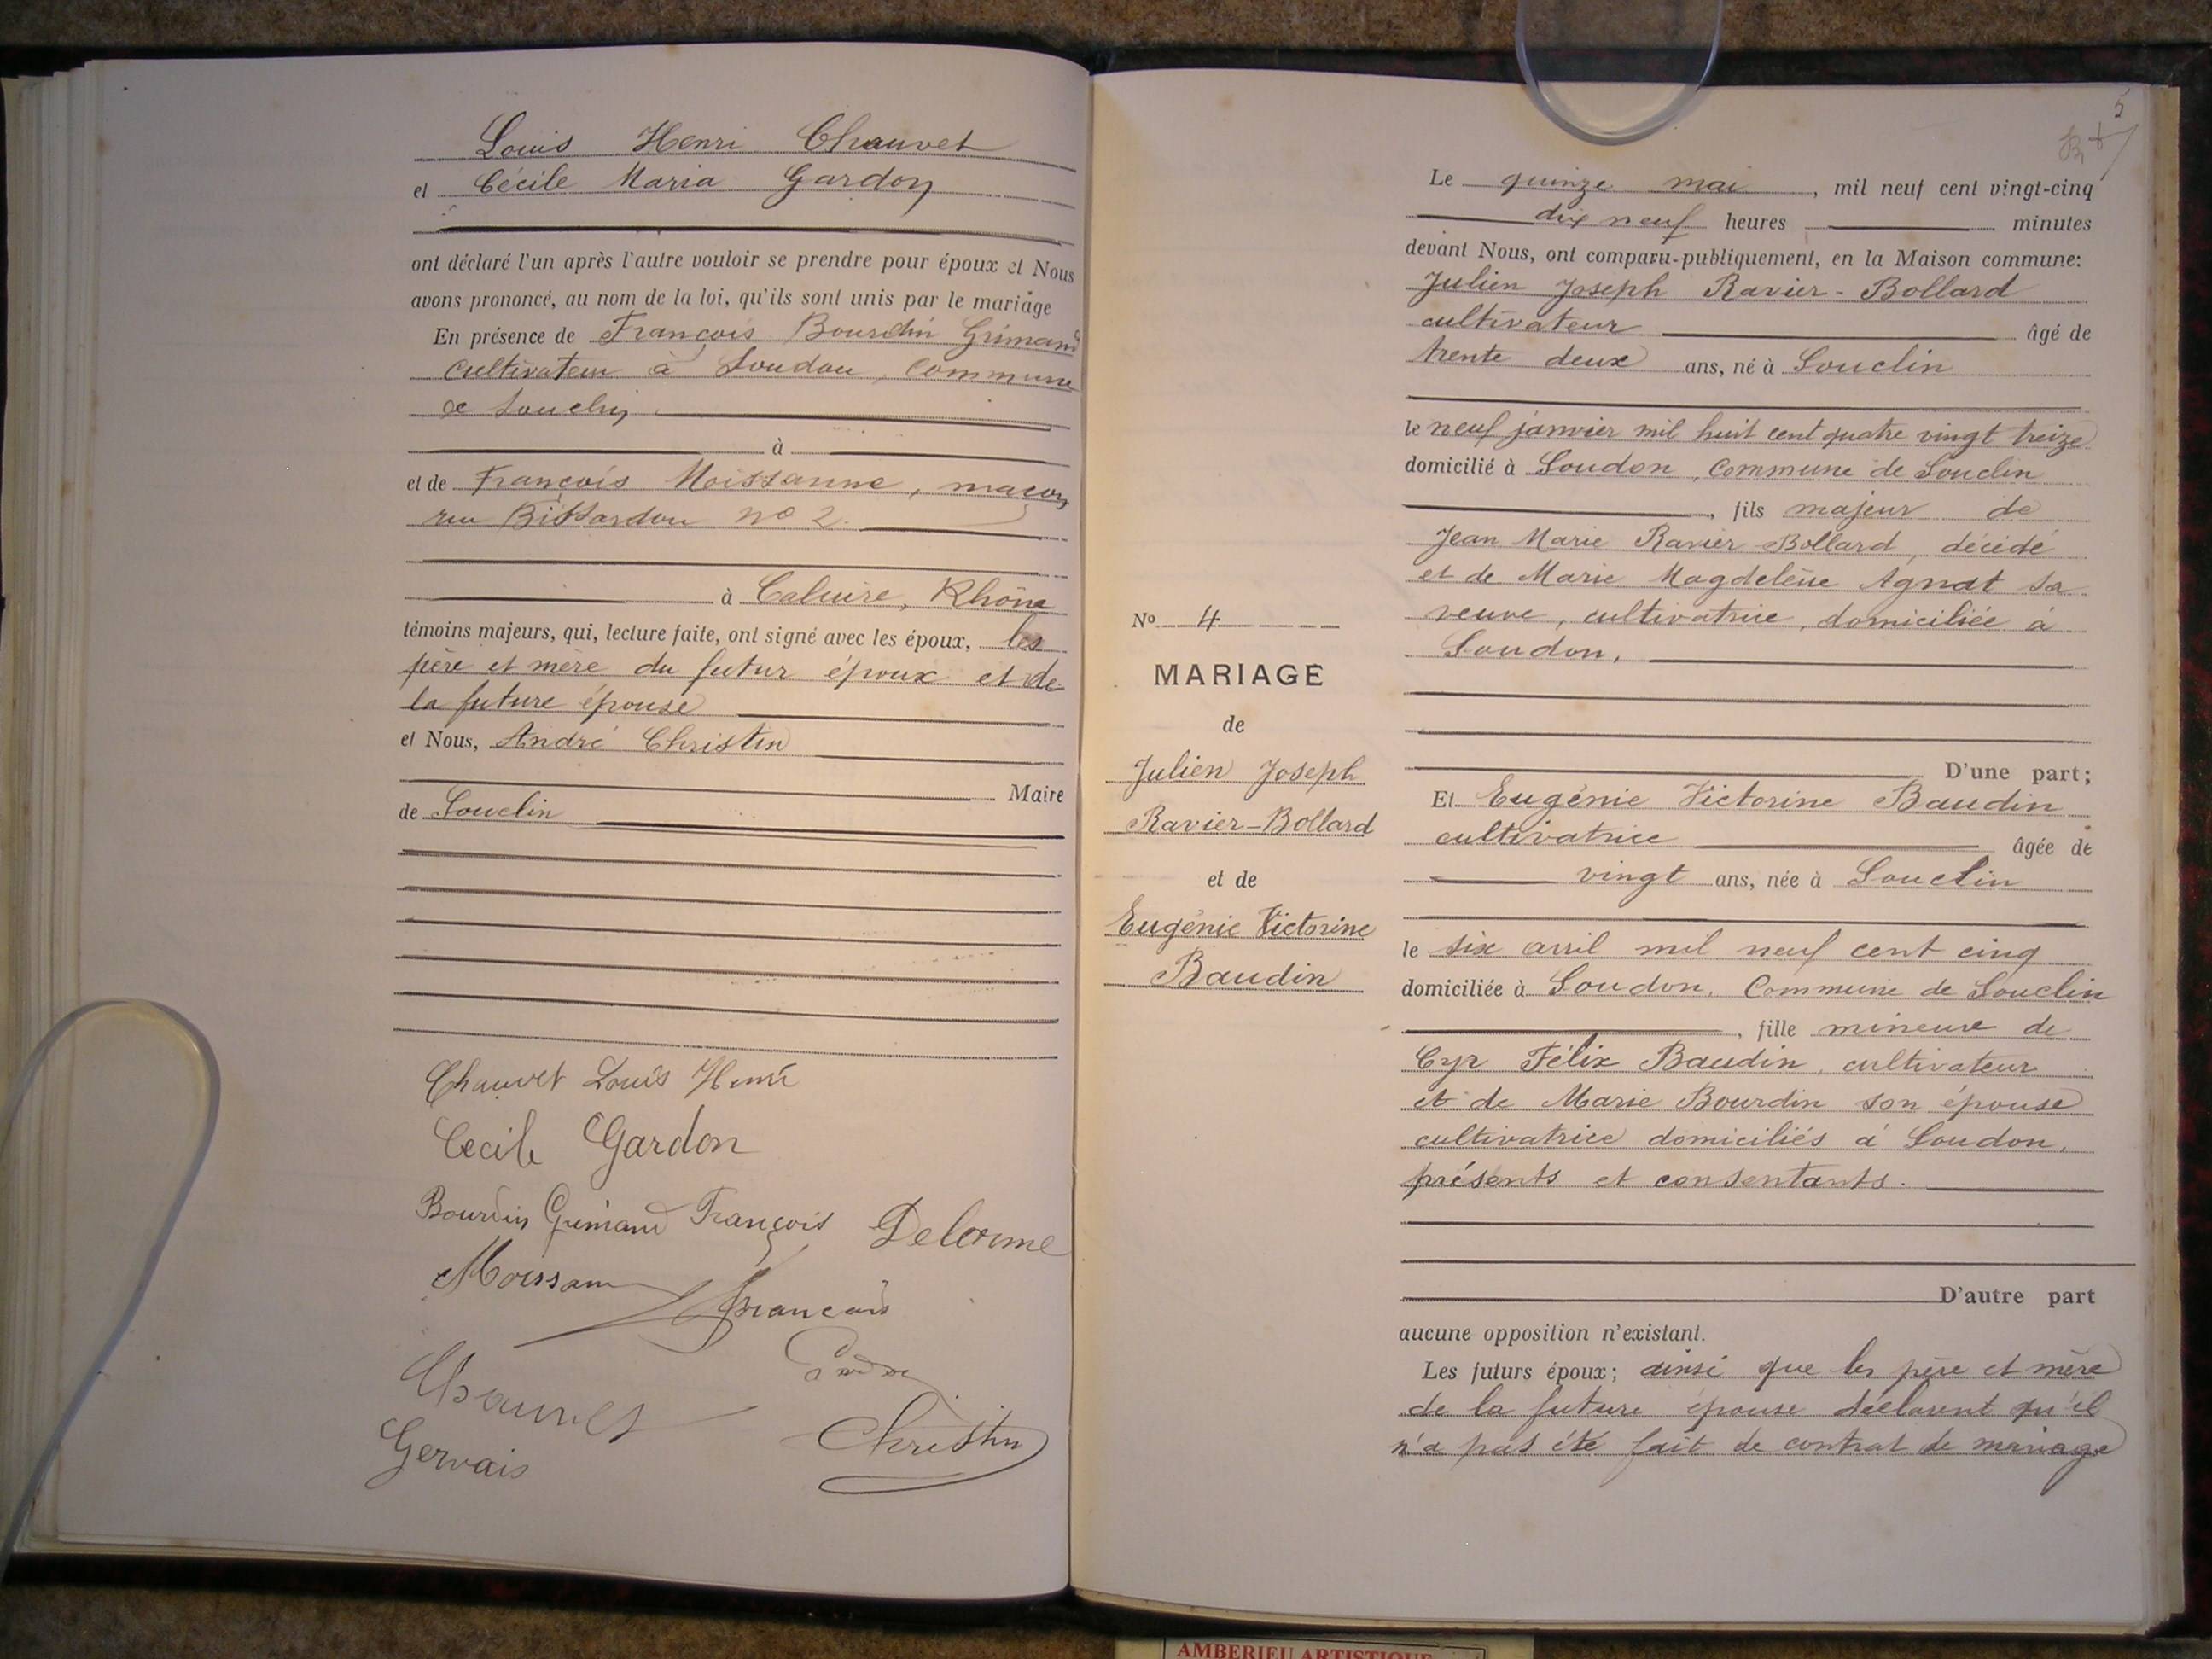 Louis Henri Chauvet
et Cécile Maria Gardon
ont déclaré l'un après l'autre vouloir se prendre pour époux et Nous
avons prononcé, au nom de la loi, qu'ils sont unis par le mariage
En présence de François Bourdin Grimaud
cultivateur à Soudon, Commune
de Souclin
à
et de François Moissanne, maçon
rue Bissardon no 2.
à Caluire, Rhône
témoins majeurs, qui, lecture faite, ont signé avec les époux, les
père et mère du futur époux et de
la future épouse
et Nous, André Christin
Maire
de Souclin
Chauvet Louis Henri
Cecile Gardon
Bourdin Grimaud François Delorme
François
Chauvet
Gervais
Christin
5
Le quinze mai, mil neuf cent vingt-cinq
dix neuf heures minutes
devant Nous, ont comparu publiquement, en la Maison commune:
Julien Joseph Ravier-Bollard
cultivateur âgé de
trente deux ans, né à Souclin
le neuf janvier mil huit cent quatre vingt treize
domicilié à Soudon, Commune de Souclin
, fils majeur de
Jean Marie Ravier-Bollard, décédé
et de Marie Magdeleine Agnat sa
veuve, cultivatrice, domiciliée à
Soudon.
No 4
MARIAGE
de
Julien Joseph
Ravier-Bollard
et de
Eugénie Victorine
Baudin
D'une part;
Et Eugénie Victorine Baudin
cultivatrice âgée de
vingt ans, née à Souclin
le six avril mil neuf cent cinq
domiciliée à Soudon, Commune de Souclin
, fille mineure de
Cyr Félix Baudin, cultivateur
et de Marie Bourdin son épouse
cultivatrice domiciliés à Soudon,
présents et consentants.
D'autre part
aucune opposition n'existant.
Les futurs époux; ainsi que les père et mère
de la future épouse déclarent qu'il
n'a pas été fait de contrat de mariage
AMBERIEU ARTISTIQUE